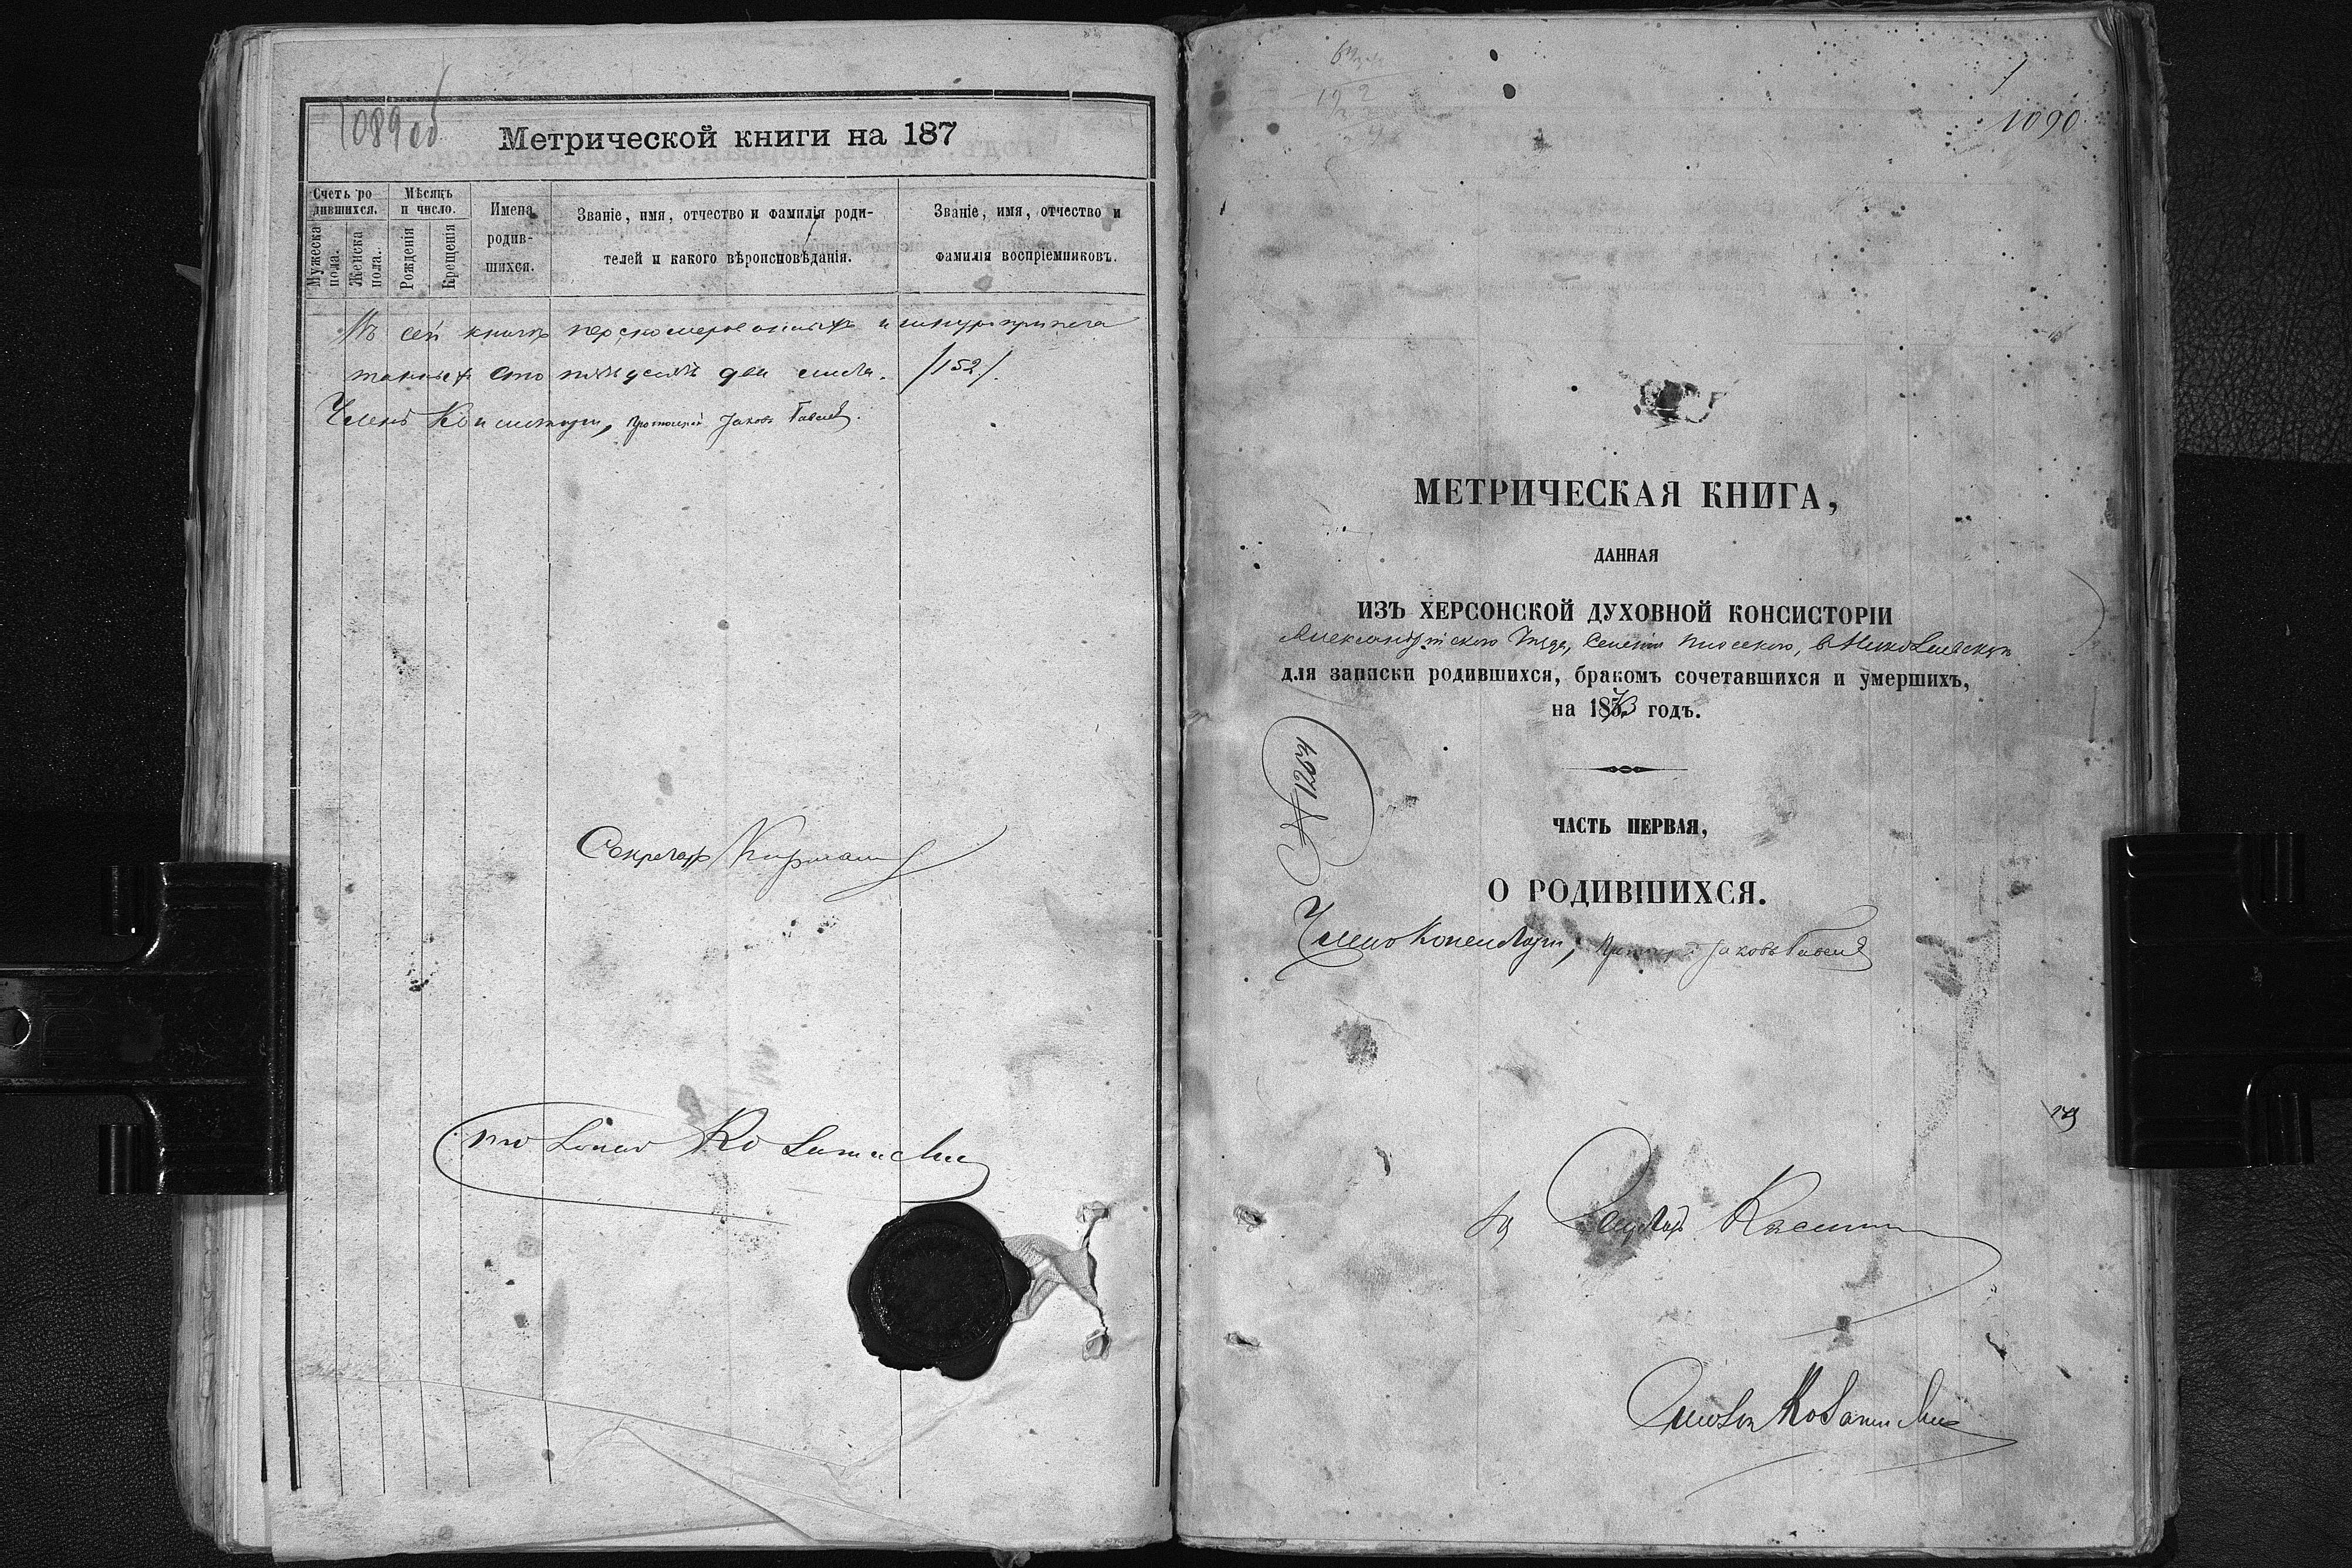 1089 об
Метрической книги на 187
Счетъ ро
дившихся.
Мужеска
пола.
Женска
пола.
Мѣсяцъ
и число.
Рожденія
Крещенія
Имена
родив-
шихся.
Званіе, имя, отчество и фамилія роди-
телей и какого вѣроисповѣданія.
Званіе, имя, отчество и
фамилія воспріемниковъ.
Въ сей книгѣ перекомерованныхъ и шнуроприпеча
танныхъ сто пятьдесятъ два листа. /152/.
Членъ Консисторіи, Протоіерей Іаковъ
Секретарь
1090
МЕТРИЧЕСКАЯ КНИГА,
ДАННАЯ
ИЗЪ ХЕРСОНСКОЙ ДУХОВНОЙ КОНСИСТОРІИ
Александрійскаго уѣзда, селенія
для записки родившихся, бракомъ сочетавшихся и умершихъ,
на 1873 годъ.
№ 1264
ЧАСТЬ ПЕРВАЯ,
О РОДИВШИХСЯ.
Членъ Консисторіи, Іаковъ
Секретарь